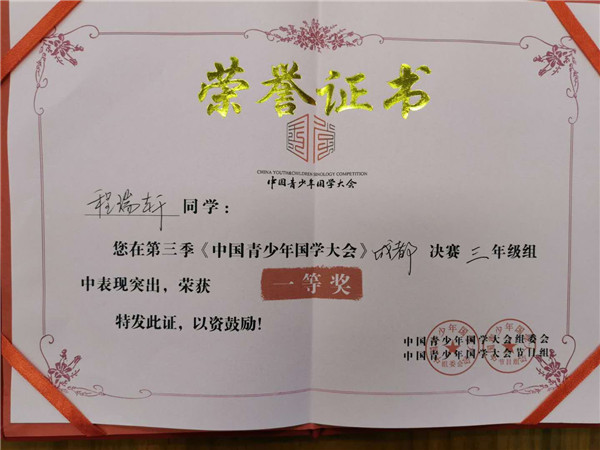 荣誉证书
CHINA YOUTH&CHILDREN SINOLOGY COMPETITION
中国青少年国学大会
程瑞轩 同学：
您在第三季《中国青少年国学大会》成都 决赛 三 年级组
中表现突出，荣获 一等奖
特发此证，以资鼓励！
中国青少年国学大会组委会
中国青少年国学大会节目组